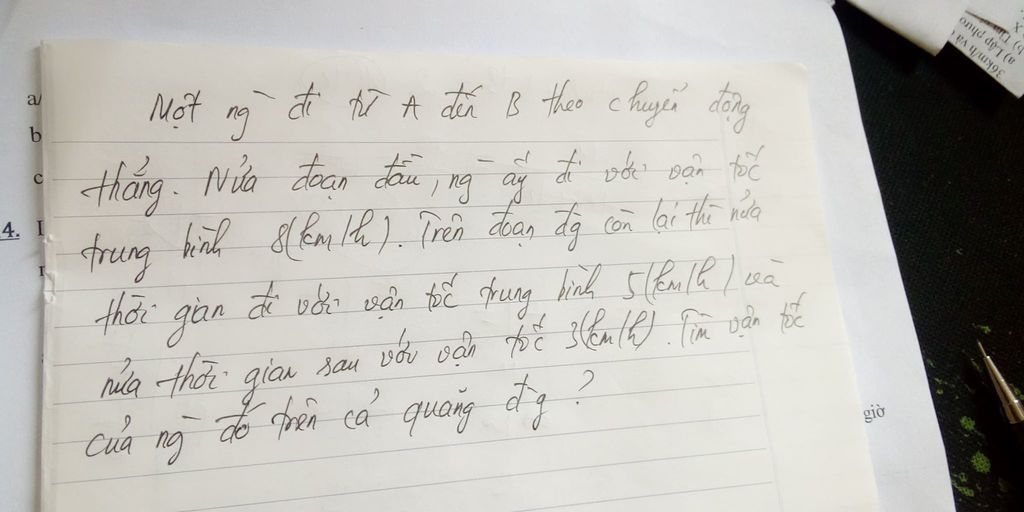 Một ng` đi từ A đến B theo chuyển động
thẳng. Nửa đoạn đầu, ng` ấy đi với vận tốc
trung bình 8(km/h). Trên đoạn đg còn lại thì nửa
thời gian đi với vận tốc trung bình 5(km/h) và
nửa thời gian sau với vận tốc 3(km/h). Tìm vận tốc
của ng` đó trên cả quãng đ`g ?
a/
b
c
4.
giờ
36km/h và
a) Lập phươ